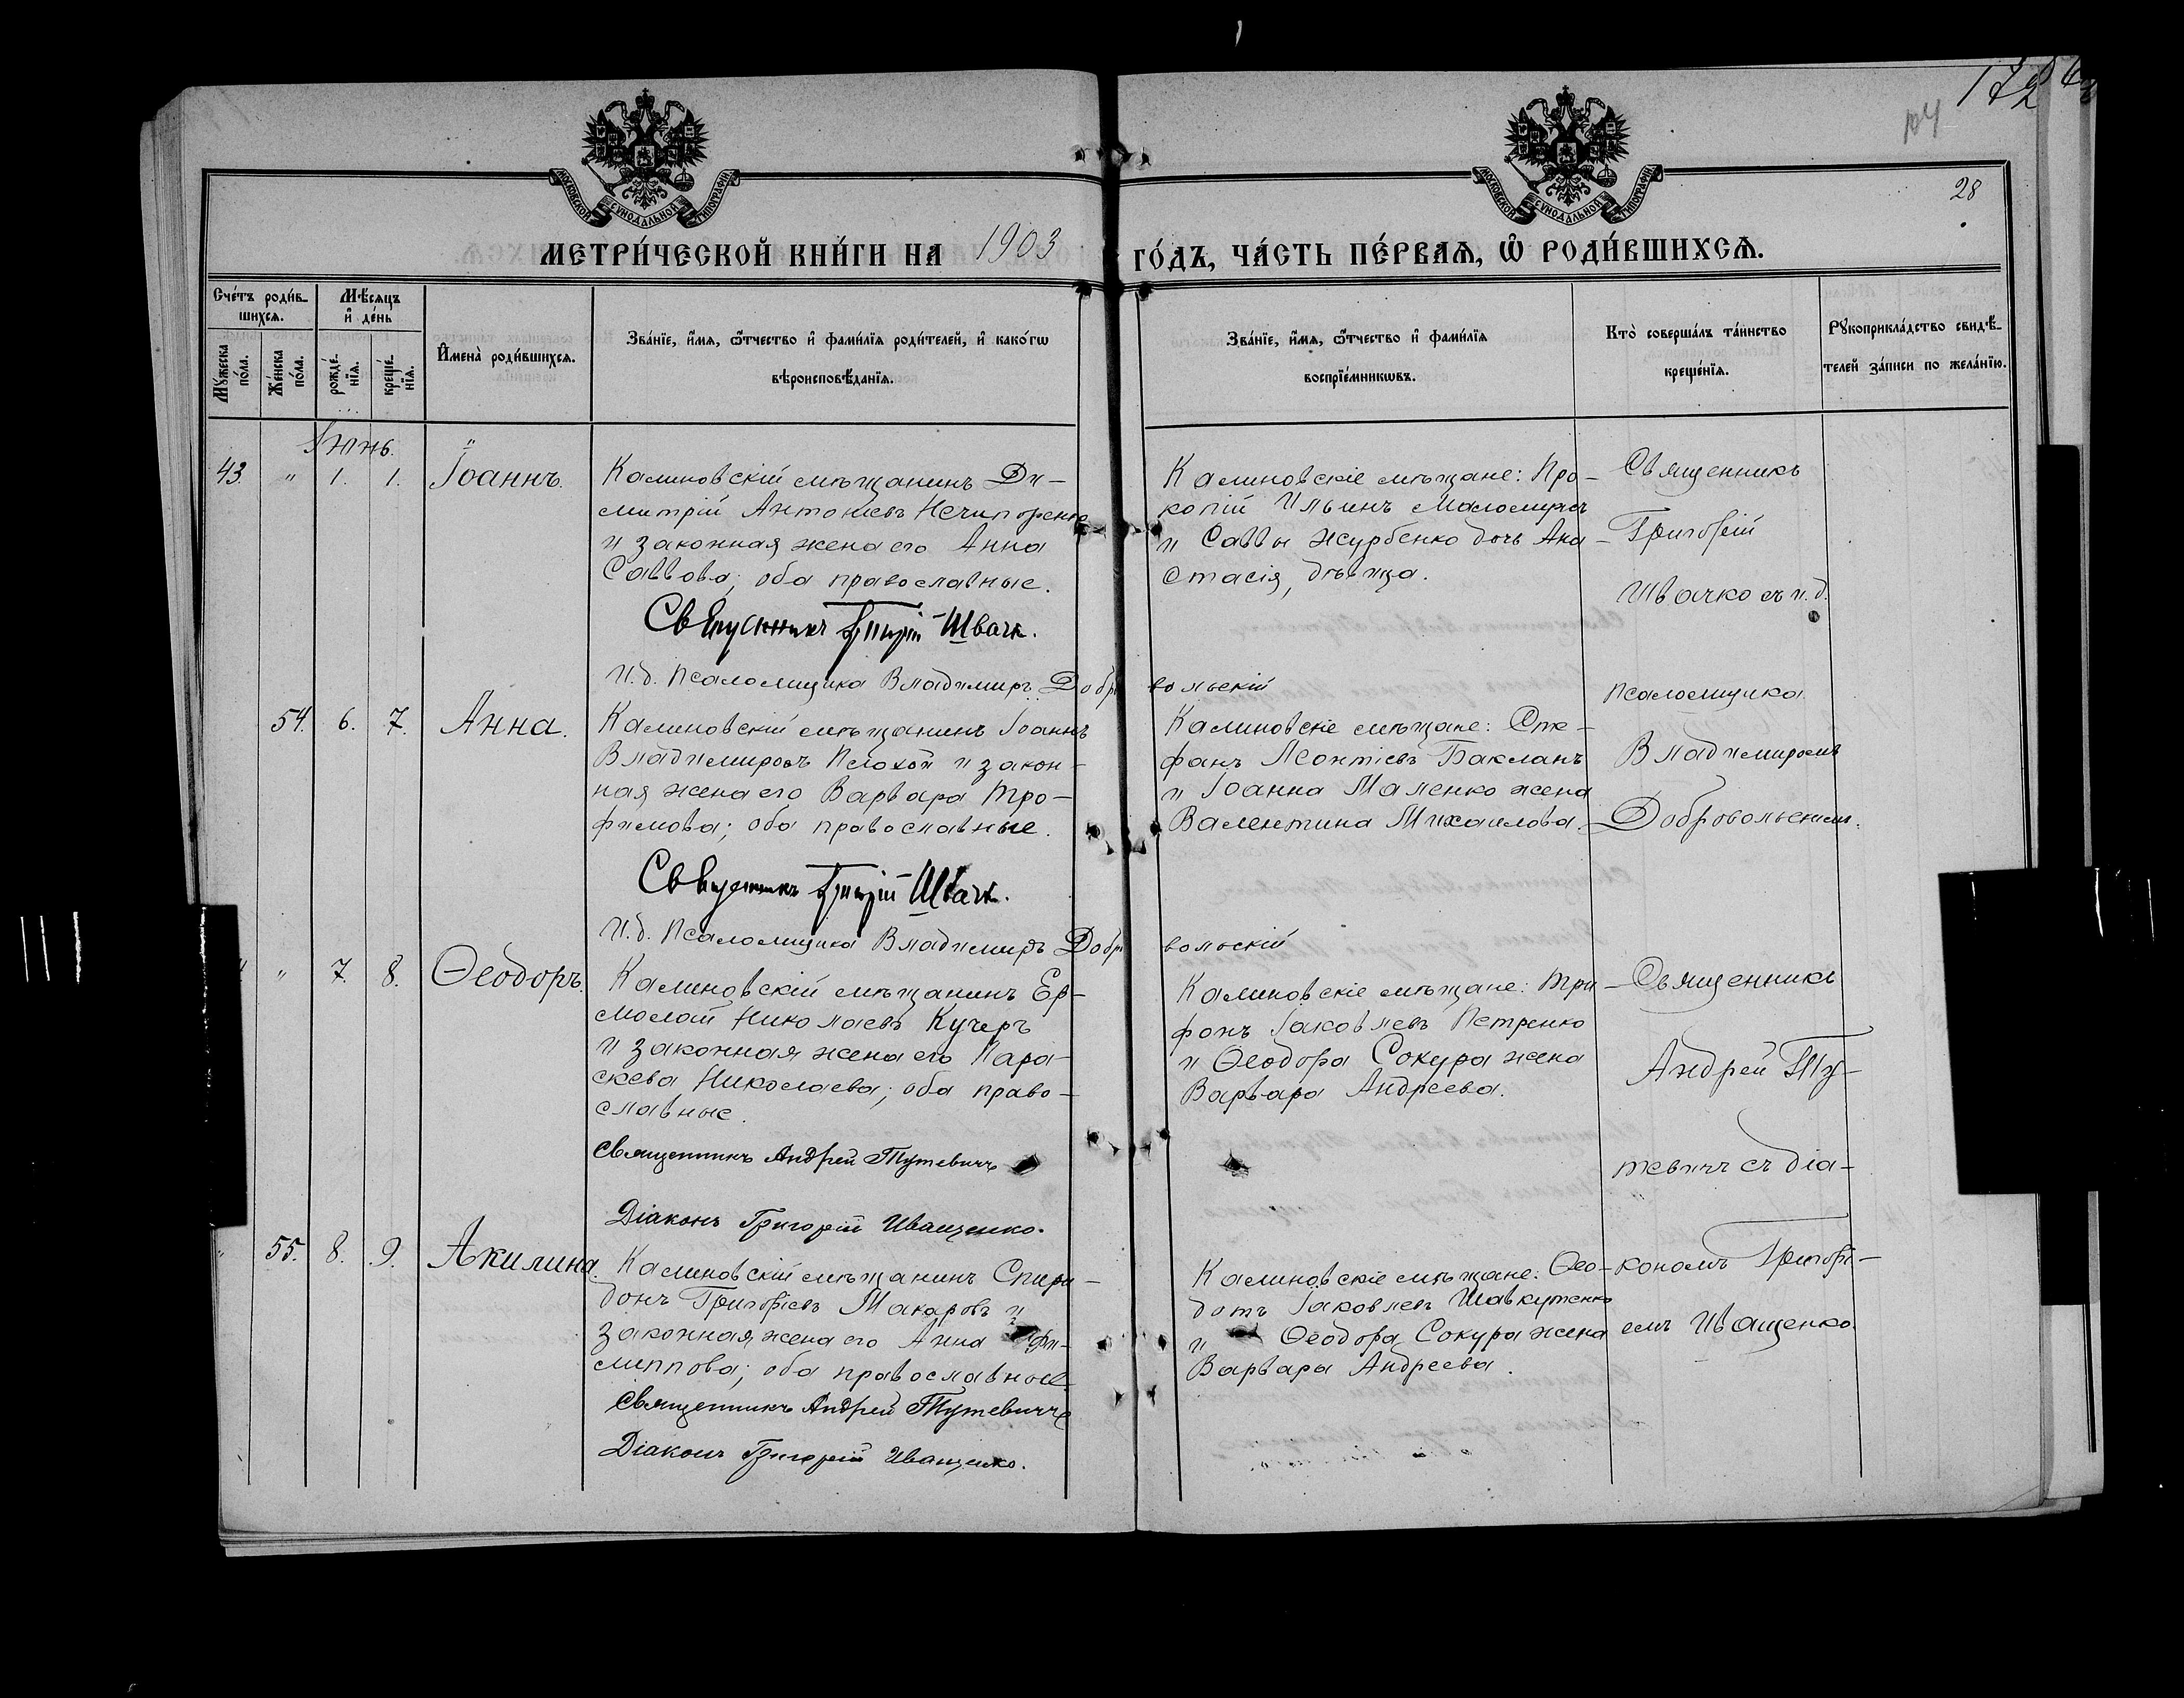 172
28
МОСКОВСКОЙ СУНОДАЛЬНОЙ ТИПОГРАФІИ
МОСКОВСКОЙ СУНОДАЛЬНОЙ ТИПОГРАФІИ
МЕТРИ́ЧЕСКОЙ КНИ́ГИ НА 1903 ГО́ДЪ, ЧА́СТЬ ПЕ́РВАѦ, Ѿ РОДИ́ВШИХСѦ.
Сче́тъ роди́в-
шихсѧ.
Мꙋ́жеска по́ла.
Же́нска по́ла.
Мѣ́сѧцъ и҆ де́нь
рожде́-нїѧ.
креще́-нїѧ.
И҆мена̀ роди́вшихсѧ.
Зва́нїе, и҆́мѧ, ѻ҆́тчество и҆ фами́лїѧ роди́телей, и҆ како́гѡ
вѣроисповѣ́данїѧ.
Зва́нїе, и҆́мѧ, ѻ҆́тчество и҆ фами́лїѧ
воспрїе́мникѡвъ.
Кто̀ соверша́лъ та́инство
креще́нїѧ.
Рꙋкоприкла́дство свидѣ́-
телей за́писи по жела́нїю.
Іюнь.
43. " 1. 1. Іоаннъ.
Калиновскій мѣщанинъ Ди-
митрій Антоніевъ Нечипоренко
и законная жена его Анна
Саввова; оба православные.
Священникъ Григорій Швачк.
И.д. Псаломщика Владимиръ Добровольскій
Калиновскіе мѣщане: Про-
копій Ильинъ
и Саввы Журбенко дочь Ана-
стасія, дѣвица.
Священникъ
Григорій
Швачко съ и.д.
псаломщика
Владимиромъ
Добровольскимъ.
54. 6. 7. Анна.
Калиновскій мѣщанинъ Іоаннъ
Владимировъ Плохой и закон-
ная жена его Варвара Тро-
фимова; оба православные.
Священникъ Григорій Швачк.
И.д. Псаломщика Владимиръ Добровольскій
Калиновскіе мѣщане: Сте-
фанъ Леонтіевъ Бакланъ
и Іоанна Маленко жена
Валентина Михаилова.
" 7. 8. Ѳеодоръ.
Калиновскій мѣщанинъ Ер-
молай Николаевъ Кучеръ
и законная жена его Пара-
скева Николаева; оба право-
славные.
Священникъ Андрей Тутевичъ
Діаконъ Григорій Иващенко.
Калиновскіе мѣщане: Три-
фонъ Іаковлевъ Петренко
и Ѳеодора Сокура жена
Варвара Андреева.
Священникъ
Андрей Ту-
тевичъ съ діа-
кономъ Григорі-
емъ Иващенко.
55. 8. 9. Акилина.
Калиновскій мѣщанинъ Спири-
донъ Григоріевъ Макаровъ и
законная жена его Анна Фи-
липпова; оба православные
Священникъ Андрей Тутевичъ
Діаконъ Григорій Иващенко.
Калиновскіе мѣщане: Ѳео-
дотъ Іаковлевъ Шавкутенко
и Ѳеодора Сокура жена
Варвара Андреева.